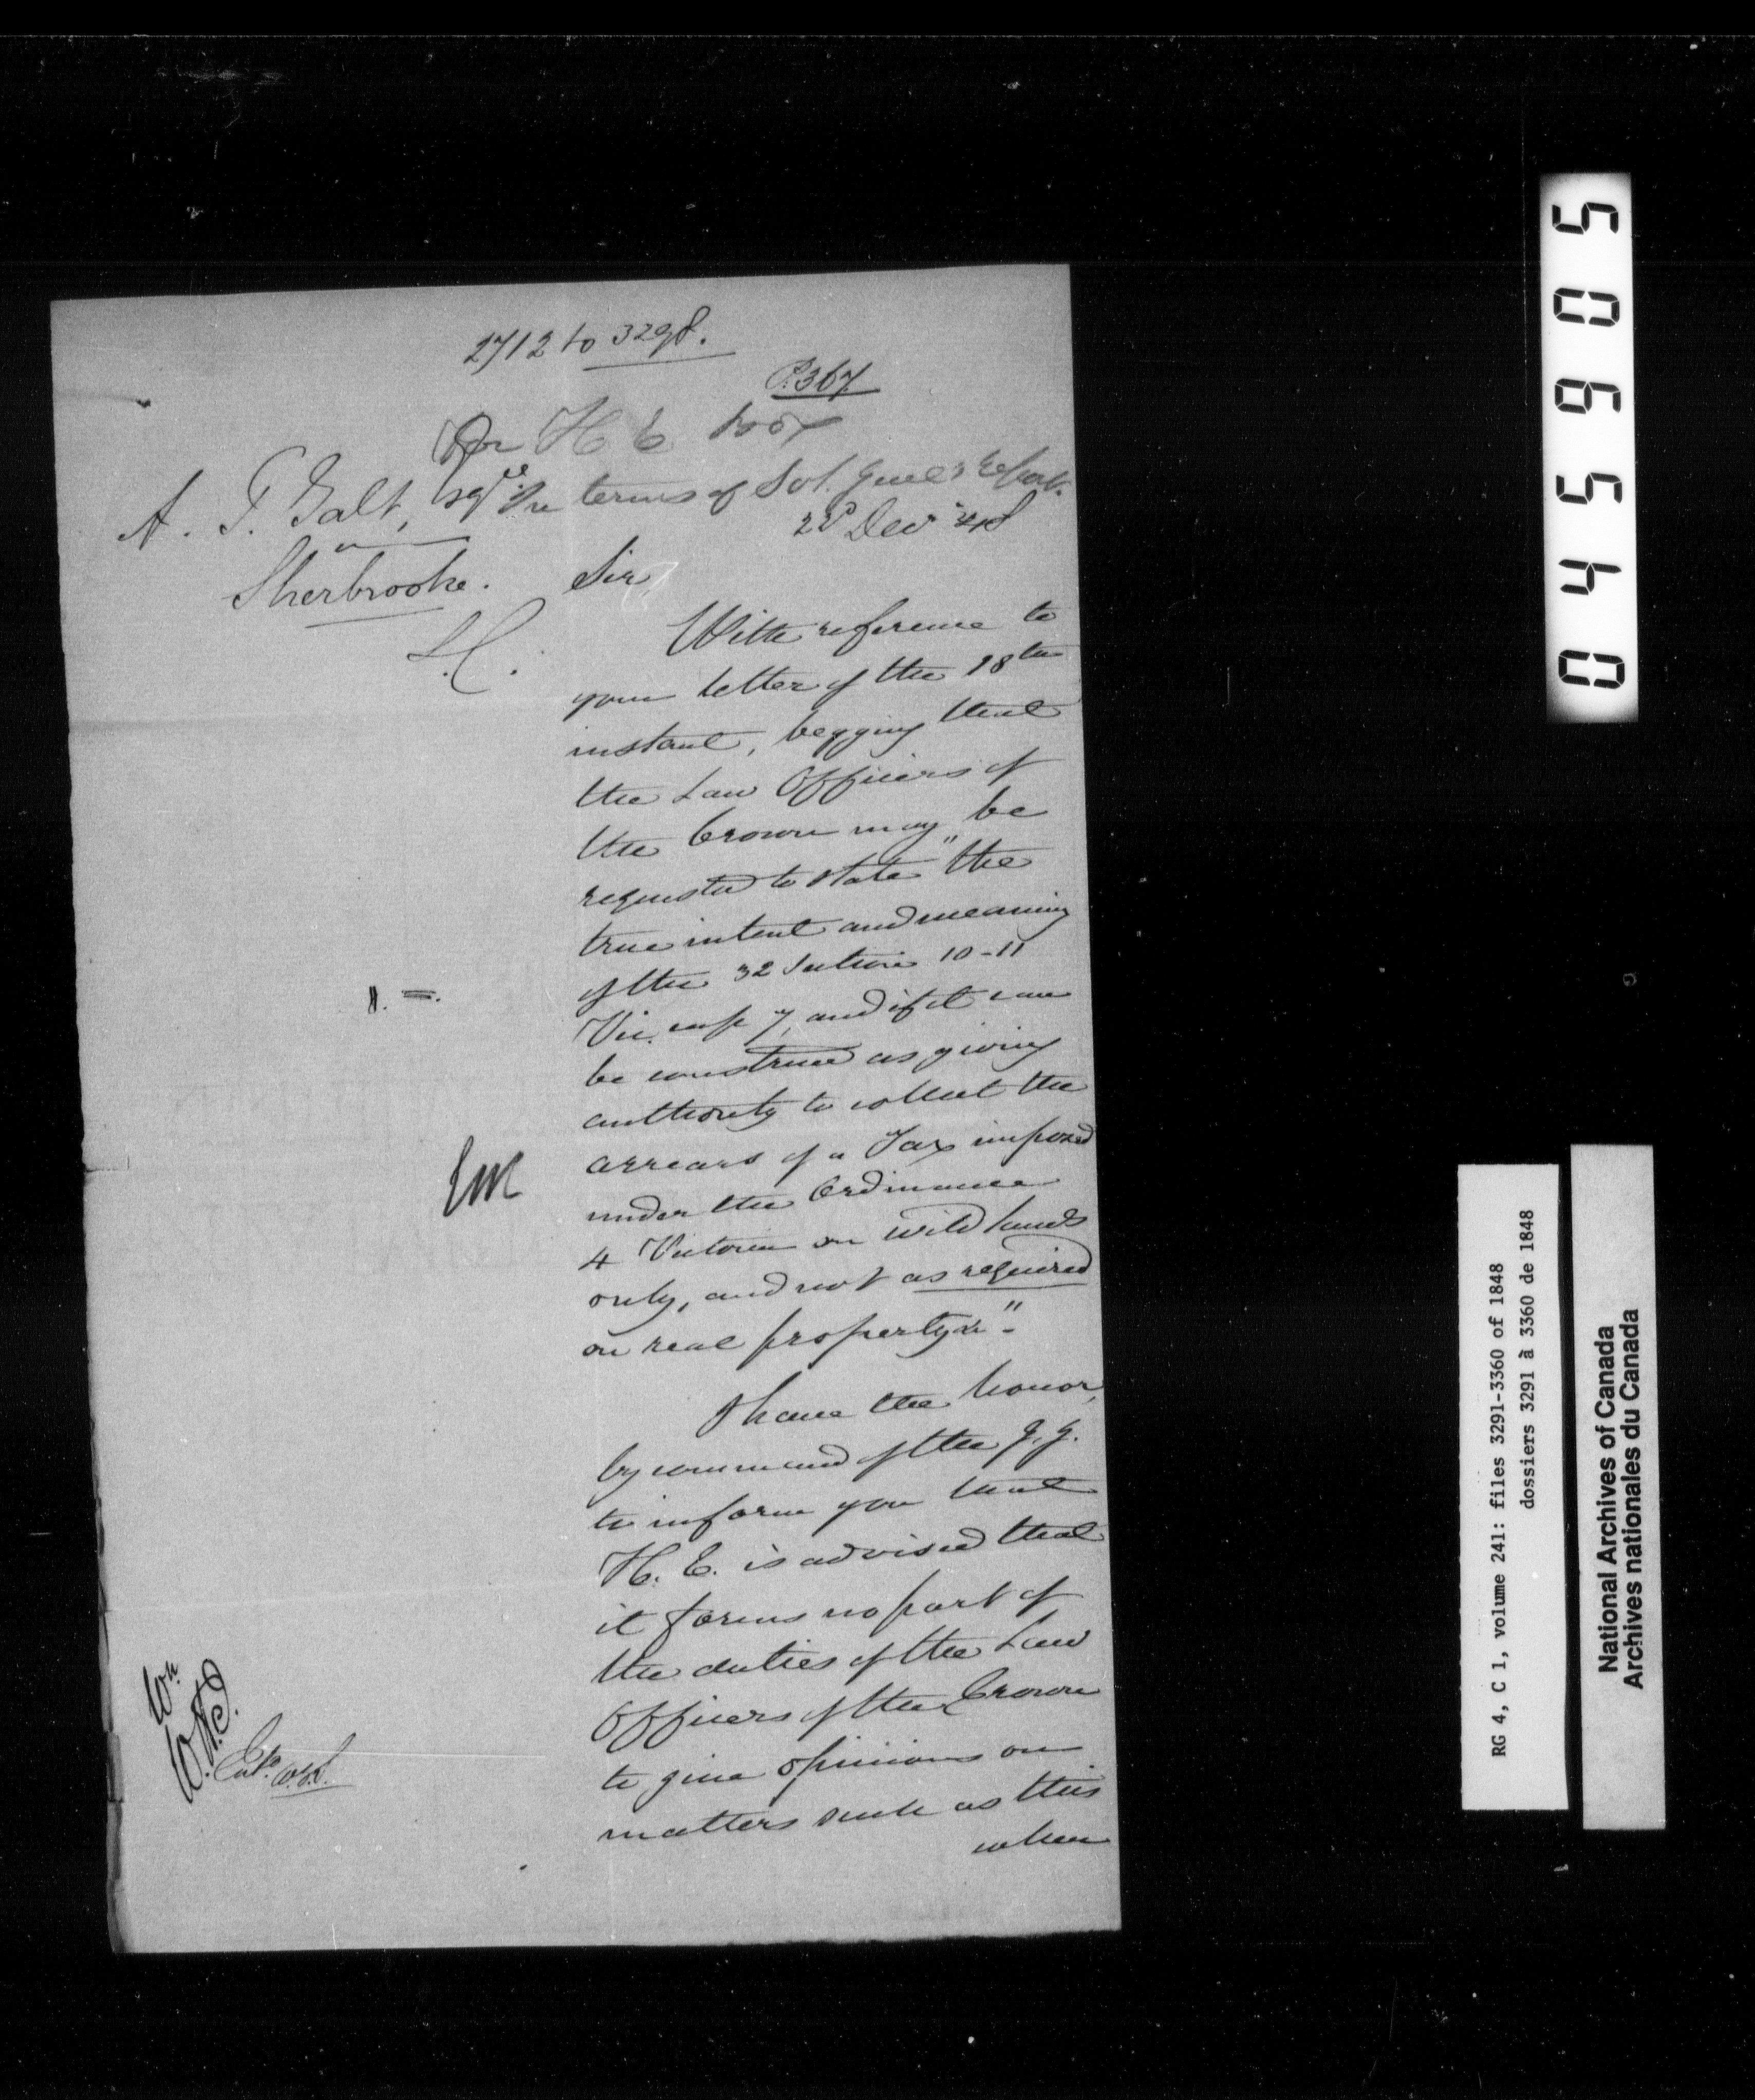 2712 to 3298.
P.367
For H E
In terms of Sol. Genl's Report.
22d Dec '48
A. T. Galt, Esqre
Sherbrooke.
Sir,
With reference to
your letter of the 18th
instant, begging that
the Law Officers of
the Crown may be
requested to state "the
true intent and meaning
of the 32 Section 10-11
Vic. cap 7, and if it can
be construed as giving
authority to collect the
arrears of a Tax imposed
under the Ordinance
4 Victoria on wild lands
only, and not as required
on real property &c" -
I have the honor,
by command of the G. G.
to inform you that
H. E. is advised that
it forms no part of
the duties of the Law
Officers of the Crown
to give opinions on
matters such as this
when
045905
RG 4, C 1, volume 241: files 3291-3360 of 1848
dossiers 3291 à 3360 de 1848
National Archives of Canada
Archives nationales du Canada